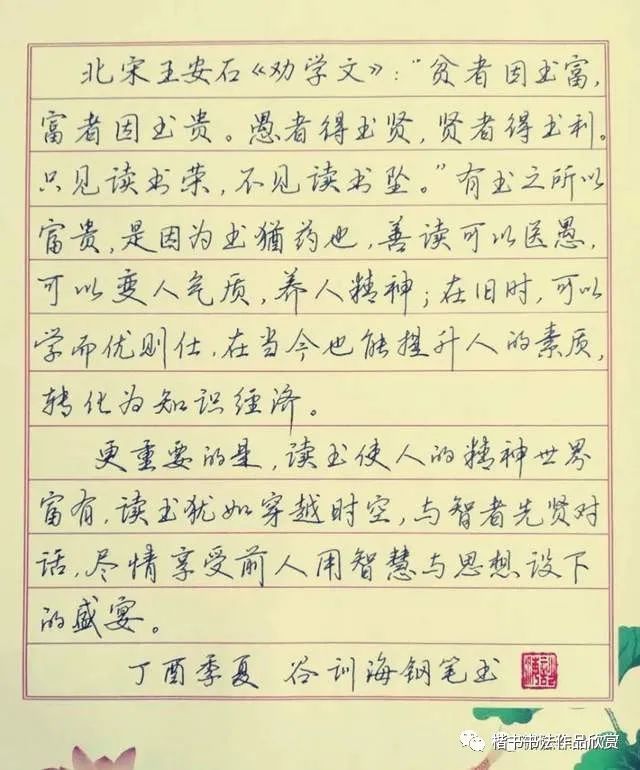 北宋王安石《劝学文》:“贫者因书富,
富者因书贵。愚者得书贤,贤者得书利。
只见读书荣,不见读书坠。”有书之所以
富贵,是因为书犹药也,善读可以医愚,
可以变人气质,养人精神;在旧时,可以
学而优则仕,在当今也能提升人的素质,
转化为知识经济。
更重要的是,读书使人的精神世界
富有,读书犹如穿越时空,与智者先贤对
话,尽情享受前人用智慧与思想设下
的盛宴。
丁酉季夏 谷训海钢笔书
楷书书法作品欣赏